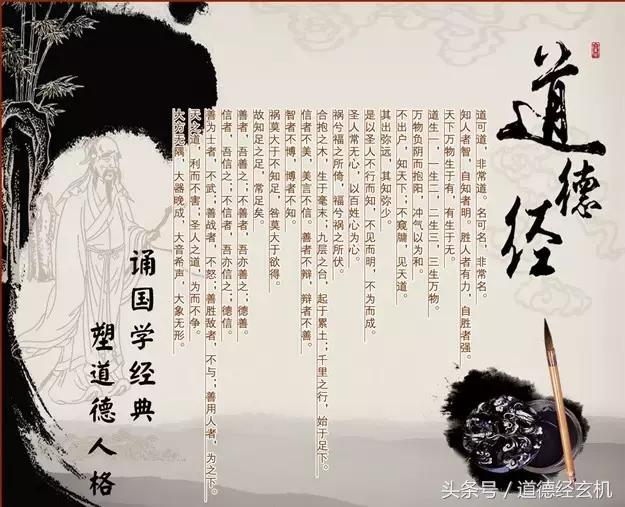 道德经
道可道，非常道。名可名，非常名。
知人者智，自知者明。胜人者有力，自胜者强。
天下万物生于有，有生于无。
道生一，一生二，二生三，三生万物。
万物负阴而抱阳，冲气以为和。
不出户，知天下；不窥牖，见天道。
其出弥远，其知弥少。
是以圣人不行而知，不见而明，不为而成。
圣人常无心，以百姓心为心。
祸兮福之所倚，福兮祸之所伏。
合抱之木，生于毫末；九层之台，起于累土；千里之行，始于足下。
信者不美，美言不信。善者不辩，辩者不善。
智者不博，博者不知。
祸莫大于不知足，咎莫大于欲得。
故知足之足，常足矣。
善者，吾善之；不善者，吾亦善之；德善。
信者，吾信之；不信者，吾亦信之；德信。
善为士者，不武；善战者，不怒；善胜敌者，不与；善用人者，为之下。
天之道，利而不害；圣人之道，为而不争。
大方无隅，大器晚成，大音希声，大象无形。
诵国学经典
塑道德人格
头条号／道德经玄机